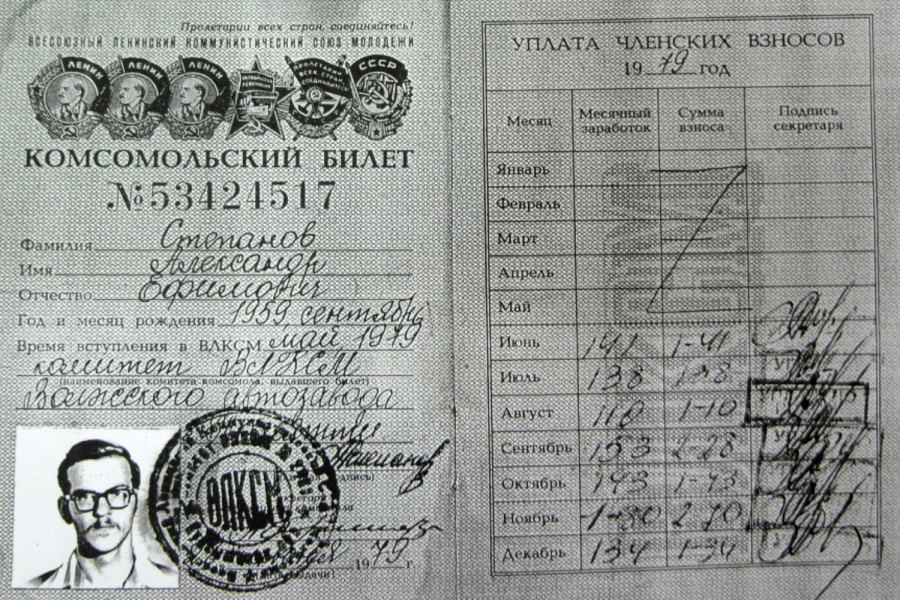 Пролетарии всех стран, соединяйтесь!
ВСЕСОЮЗНЫЙ ЛЕНИНСКИЙ КОММУНИСТИЧЕСКИЙ СОЮЗ МОЛОДЕЖИ
ЛЕНИН ЛЕНИН ЛЕНИН ПРОЛЕТАРИИ ВСЕХ СТРАН СОЕДИНЯЙТЕСЬ СССР
КОМСОМОЛЬСКИЙ БИЛЕТ
№53424517
Фамилия Степанов
Имя Александр
Отчество Ефимович
Год и месяц рождения 1959 сентябрь
Время вступления в ВЛКСМ май 1979
комитет ВЛКСМ
(наименование комитета комсомола, выдавшего билет)
Волжского автозавода
ВЛКСМ
1979 г.
УПЛАТА ЧЛЕНСКИХ ВЗНОСОВ
1979 год
Месяц Месячный заработок Сумма взноса Подпись секретаря
Январь
Февраль
Март
Апрель
Май
Июнь 141 1-41
Июль 138 1-38
Август 110 1-10
Сентябрь 153 2-28
Октябрь 143 1-43
Ноябрь 2-70
Декабрь 134 1-34